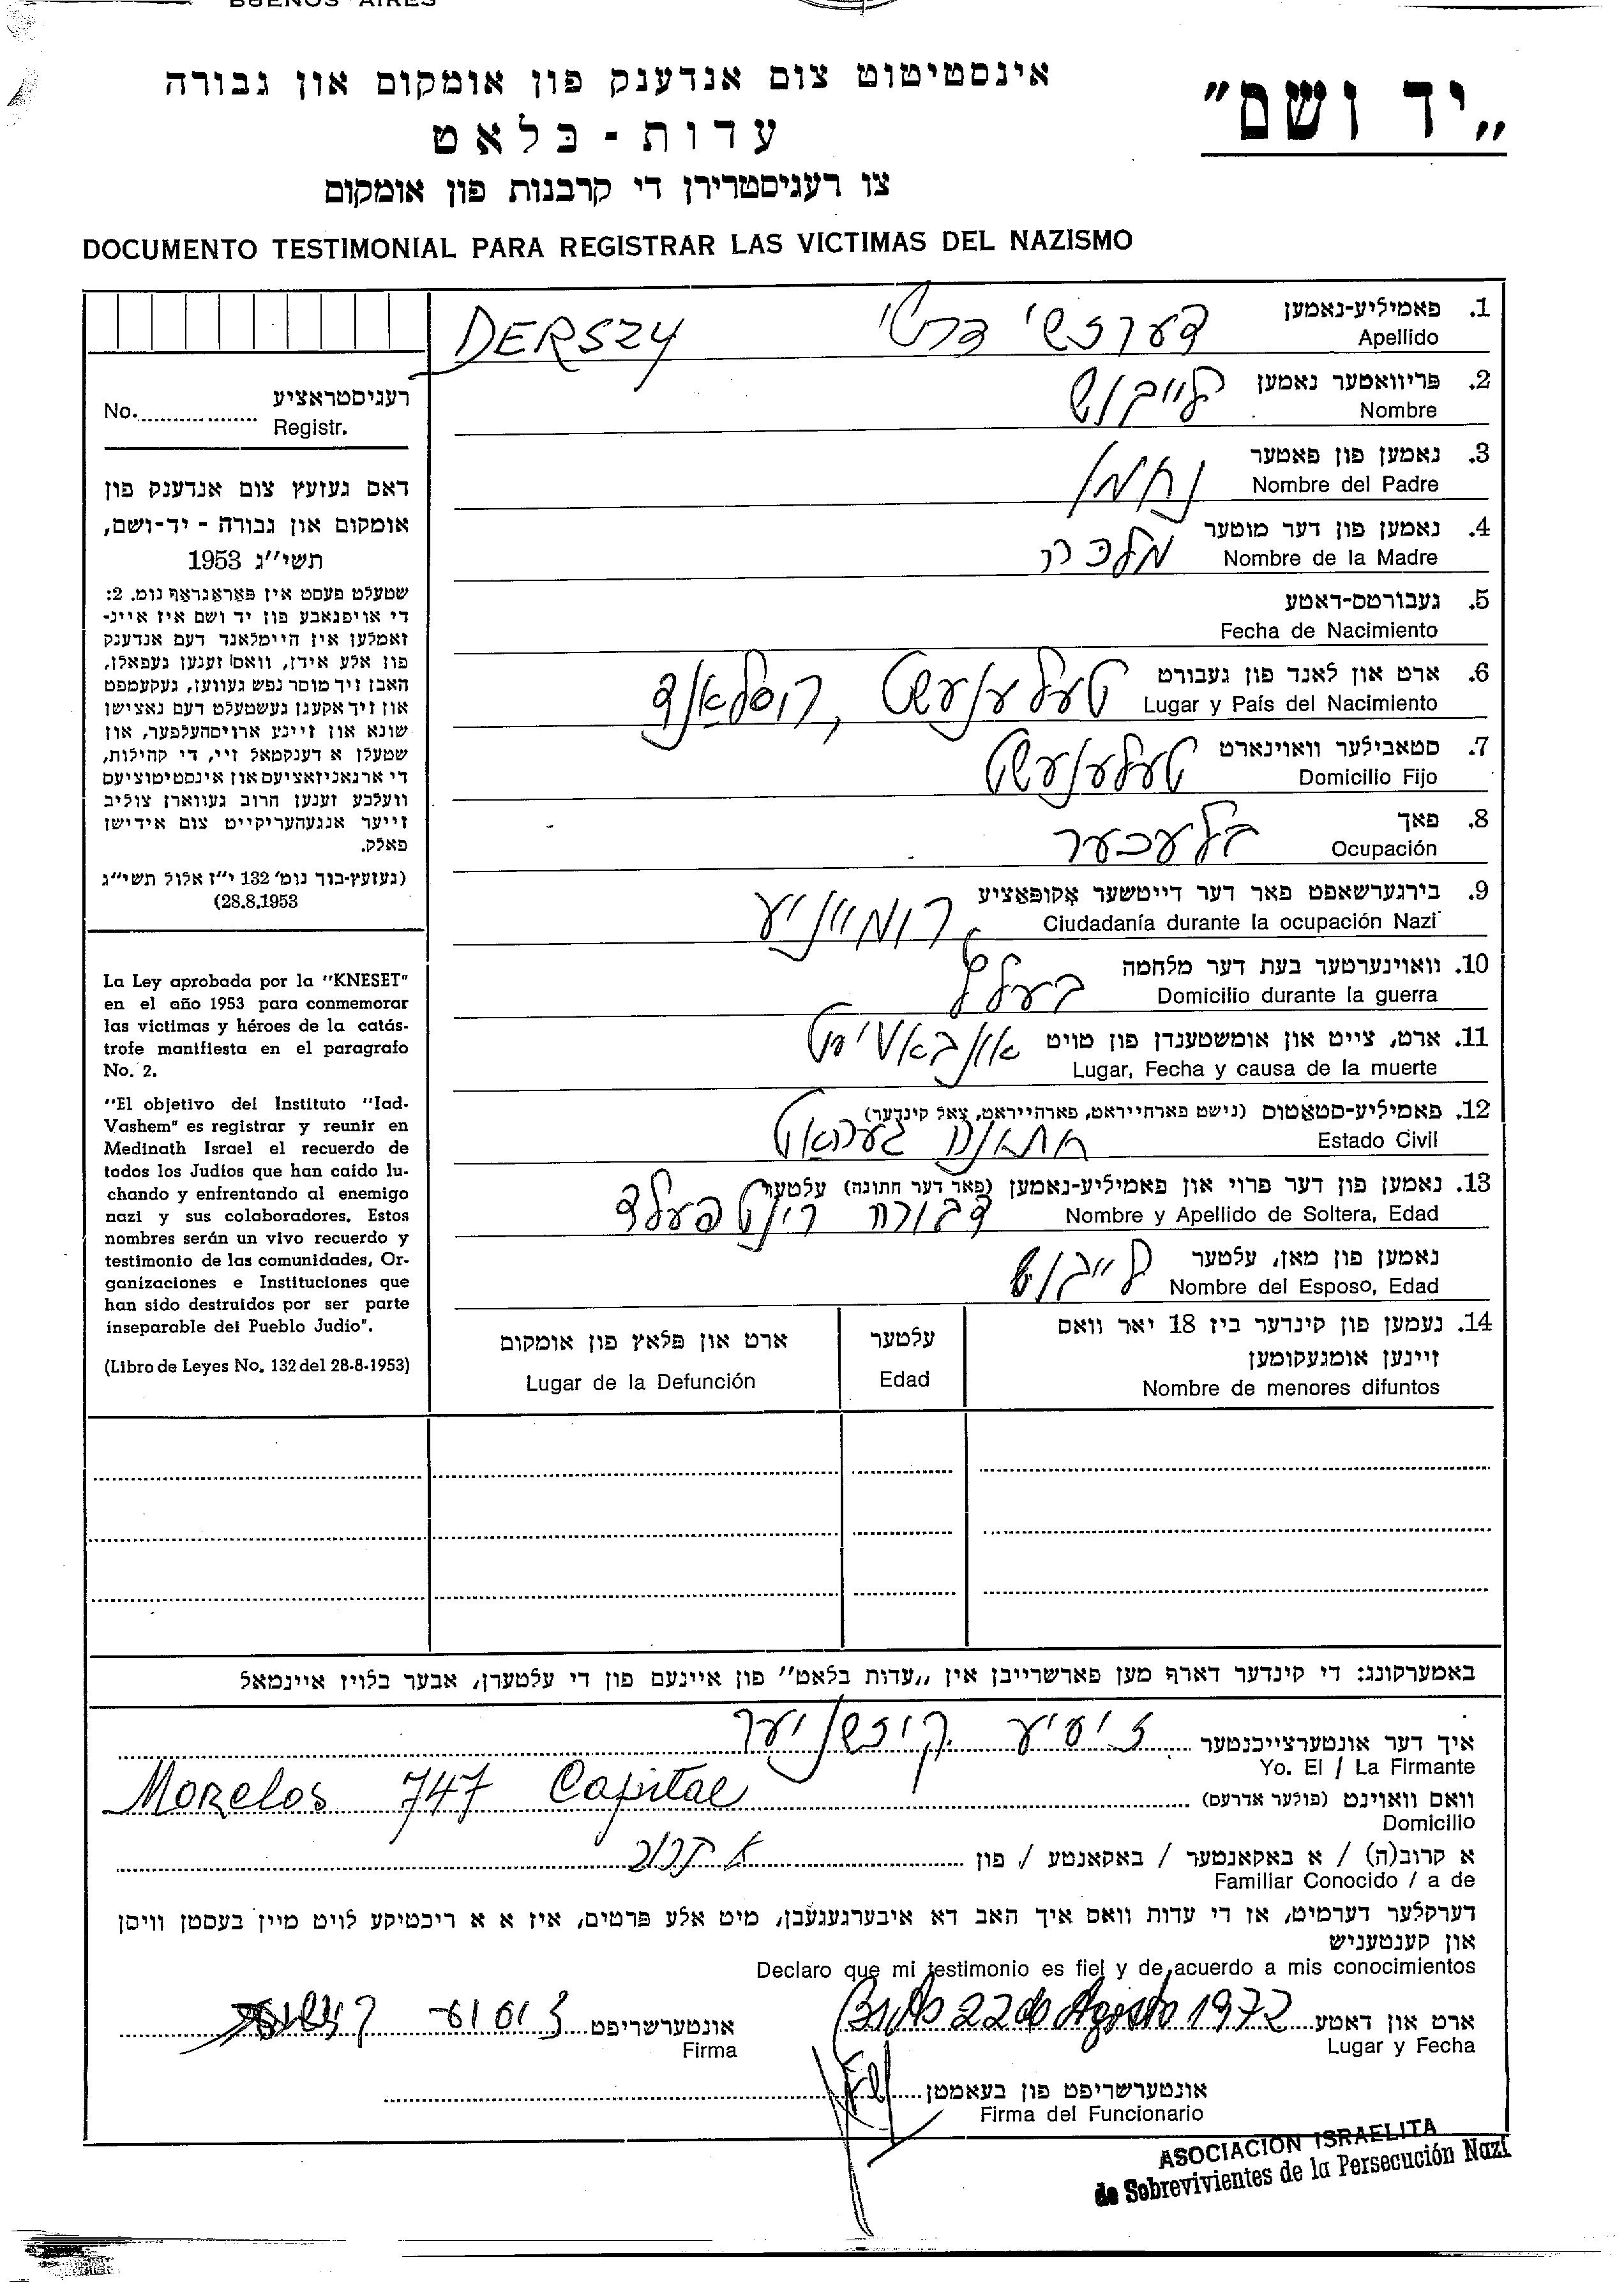 BUENOS AIRES
„יד ושם"
אינסטיטוט צום אנדענק פון אומקום און גבורה
עדות - בלאט
צו רעגיסטרירן די קרבנות פון אומקום
DOCUMENTO TESTIMONIAL PARA REGISTRAR LAS VICTIMAS DEL NAZISMO
1. פאמיליע-נאמען דערזשי DERSZY
Apellido
2. פריוואטער נאמען לייבוש
Nombre
3. נאמען פון פאטער נחמן
Nombre del Padre
4. נאמען פון דער מוטער מלכה
Nombre de la Madre
5. געבורטס-דאטע
Fecha de Nacimiento
6. ארט און לאנד פון געבורט טעלענעשט, רוסלאנד
Lugar y País del Nacimiento
7. סטאבילער וואוינארט טעלענעשט
Domicilio Fijo
8. פאך בלעכער
Ocupación
9. בירגערשאפט פאר דער דייטשער אָקופּאַציע רומייניע
Ciudadanía durante la ocupación Nazi
10. וואוינערטער בעת דער מלחמה בעלץ
Domicilio durante la guerra
11. ארט, צייט און אומשטענדן פון טויט אונבאוויסט
Lugar, Fecha y causa de la muerte
12. פאמיליע-סטאַטוס (נישט פארהייראט, פארהייראט, צאל קינדער)
Estado Civil חתונה געהאט
13. נאמען פון דער פרוי און פאמיליע-נאמען (פאר דער חתונה) עלטער
Nombre y Apellido de Soltera, Edad דבורה
נאמען פון מאן, עלטער לייבוש
Nombre del Esposo, Edad
14. נעמען פון קינדער ביז 18 יאר וואס
זיינען אומגעקומען
Nombre de menores difuntos
עלטער
Edad
ארט און פלאץ פון אומקום
Lugar de la Defunción
רעגיסטראציע
No. Registr.
דאס געזעץ צום אנדענק פון
אומקום און גבורה - יד-ושם,
תשי״ג 1953
שטעלט פעסט אין פּאַראַגראַף נומ. 2:
די אויפגאבע פון יד ושם איז איינ-
זאמלען אין היימלאנד דעם אנדענק
פון אלע אידן, וואס זענען געפאלן,
האבן זיך מוסר נפש געווען, געקעמפט
און זיך אקעגן געשטעלט דעם נאצישן
שונא און זיינע ארויסהעלפער, און
שטעלן א דענקמאל זיי, די קהילות,
די ארגאניזאציעס און אינסטיטוציעס
וועלכע זענען חרוב געווארן צוליב
זייער אנגעהעריקייט צום אידישן
פאלק.
(געזעץ-בוך נומ' 132 י״ז אלול תשי״ג
28.8.1953)
La Ley aprobada por la "KNESET"
en el año 1953 para conmemorar
las víctimas y héroes de la catás-
trofe manifiesta en el paragrafo
No. 2.
"El objetivo del Instituto "Iad-
Vashem" es registrar y reunir en
Medinath Israel el recuerdo de
todos los Judios que han caído lu-
chando y enfrentando al enemigo
nazi y sus colaboradores. Estos
nombres serán un vivo recuerdo y
testimonio de las comunidades, Or-
ganizaciones e Instituciones que
han sido destruídos por ser parte
inseparable del Pueblo Judio".
(Libro de Leyes No. 132 del 28-8-1953)
באמערקונג: די קינדער דארף מען פארשרייבן אין „עדות בלאט" פון איינעם פון די עלטערן, אבער בלויז איינמאל
איך דער אונטערצייכנטער זיסיע קושניער
Yo. El / La Firmante
וואס וואוינט (פולער אדרעס) Morelos 747 Capital
Domicilio
א קרוב(ה) / א באקאנטער / באקאנטע / פון א קרוב
Familiar Conocido / a de
דערקלער דערמיט, אז די עדות וואס איך האב דא איבערגעגעבן, מיט אלע פרטים, איז א א ריכטיקע לויט מיין בעסטן וויסן
און קענטעניש
Declaro que mi testimonio es fiel y de acuerdo a mis conocimientos
ארט און דאטע Bs As 22 de Agosto 1972 אונטערשריפט
Lugar y Fecha Firma
אונטערשריפט פון בעאמטן
Firma del Funcionario
ASOCIACION ISRAELITA
de Sobrevivientes de la Persecución Nazi